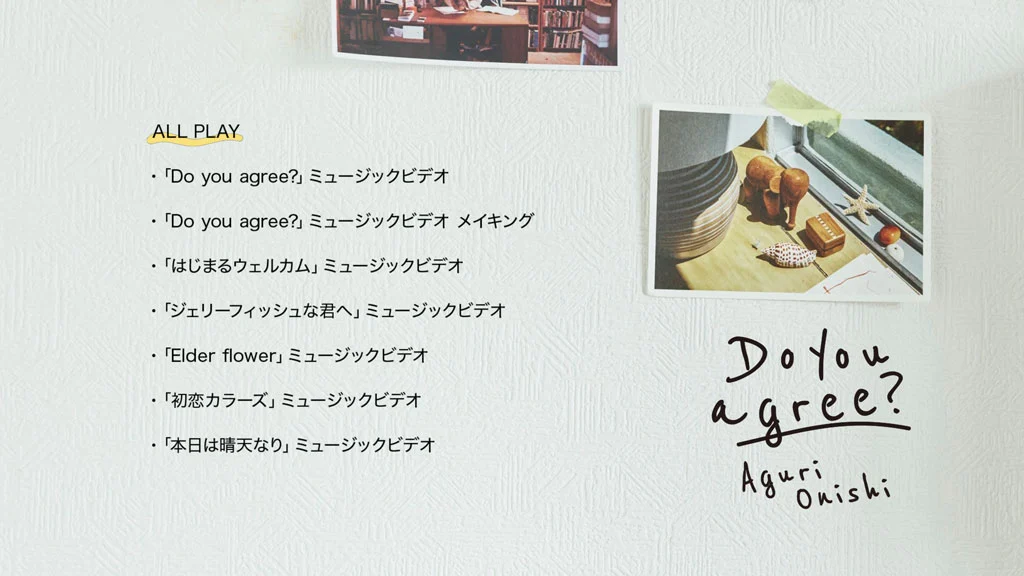 ALL PLAY
・「Do you agree?」ミュージックビデオ
・「Do you agree?」ミュージックビデオ メイキング
・「はじまるウェルカム」ミュージックビデオ
・「ジェリーフィッシュな君へ」ミュージックビデオ
・「Elder flower」ミュージックビデオ
・「初恋カラーズ」ミュージックビデオ
・「本日は晴天なり」ミュージックビデオ
Do You
agree?
Aguri
Onishi